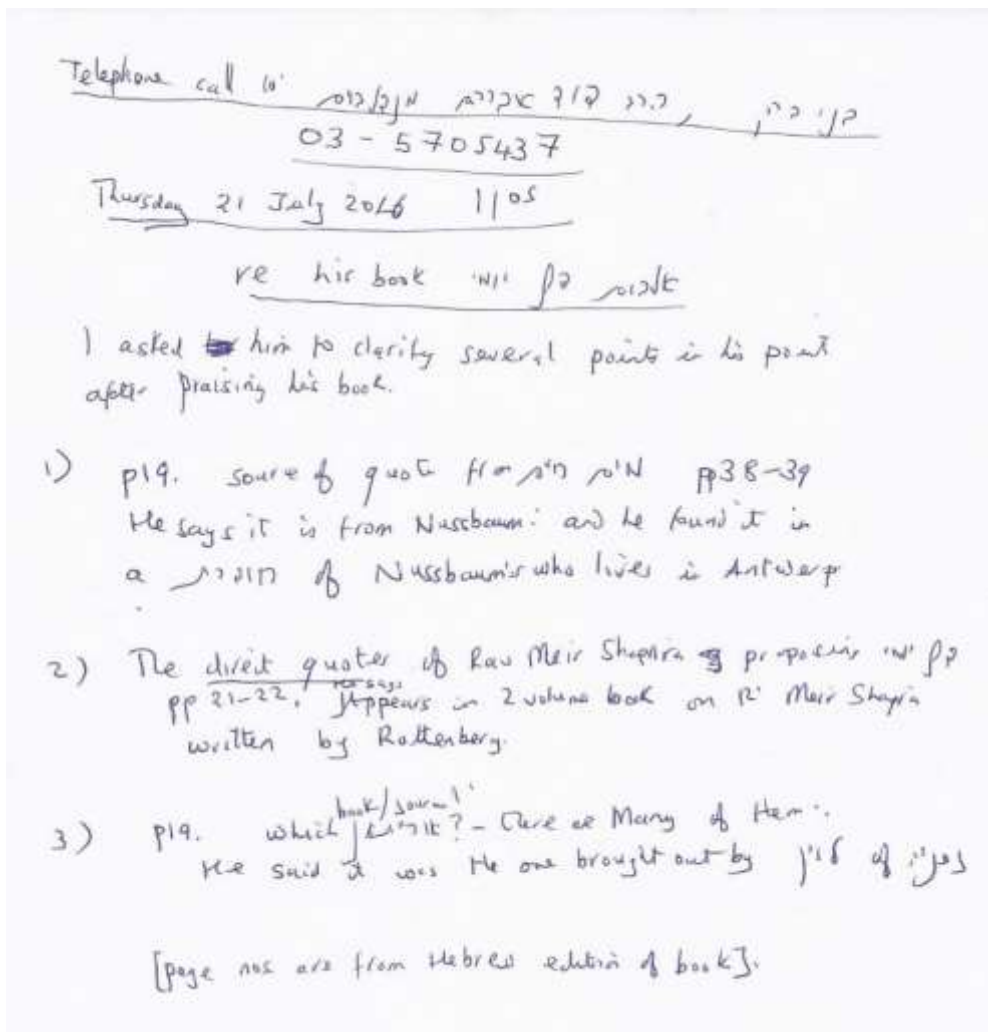 Telephone call to הרב דוד אברהם מנדלבוים, בני ברק
03 - 5705437
Thursday 21 July 2016 1105
re his book דף יומי
I asked him to clarify several points in his point
after praising his book.
1) p19. source of quote from pp38-39
He says it is from Nussbaum: and he found it in
a חוברת of Nussbaum's who lives in Antwerp
2) The direct quotes of Rav Meir Shapira proposing דף יומי
pp 21-22. He says Appears in 2 volume book on R' Meir Shapira
written by Rottenberg.
3) p19. which book/journal ? - there are Many of them.
He said it was the one brought out by of
[page nos are from Hebrew edition of book].